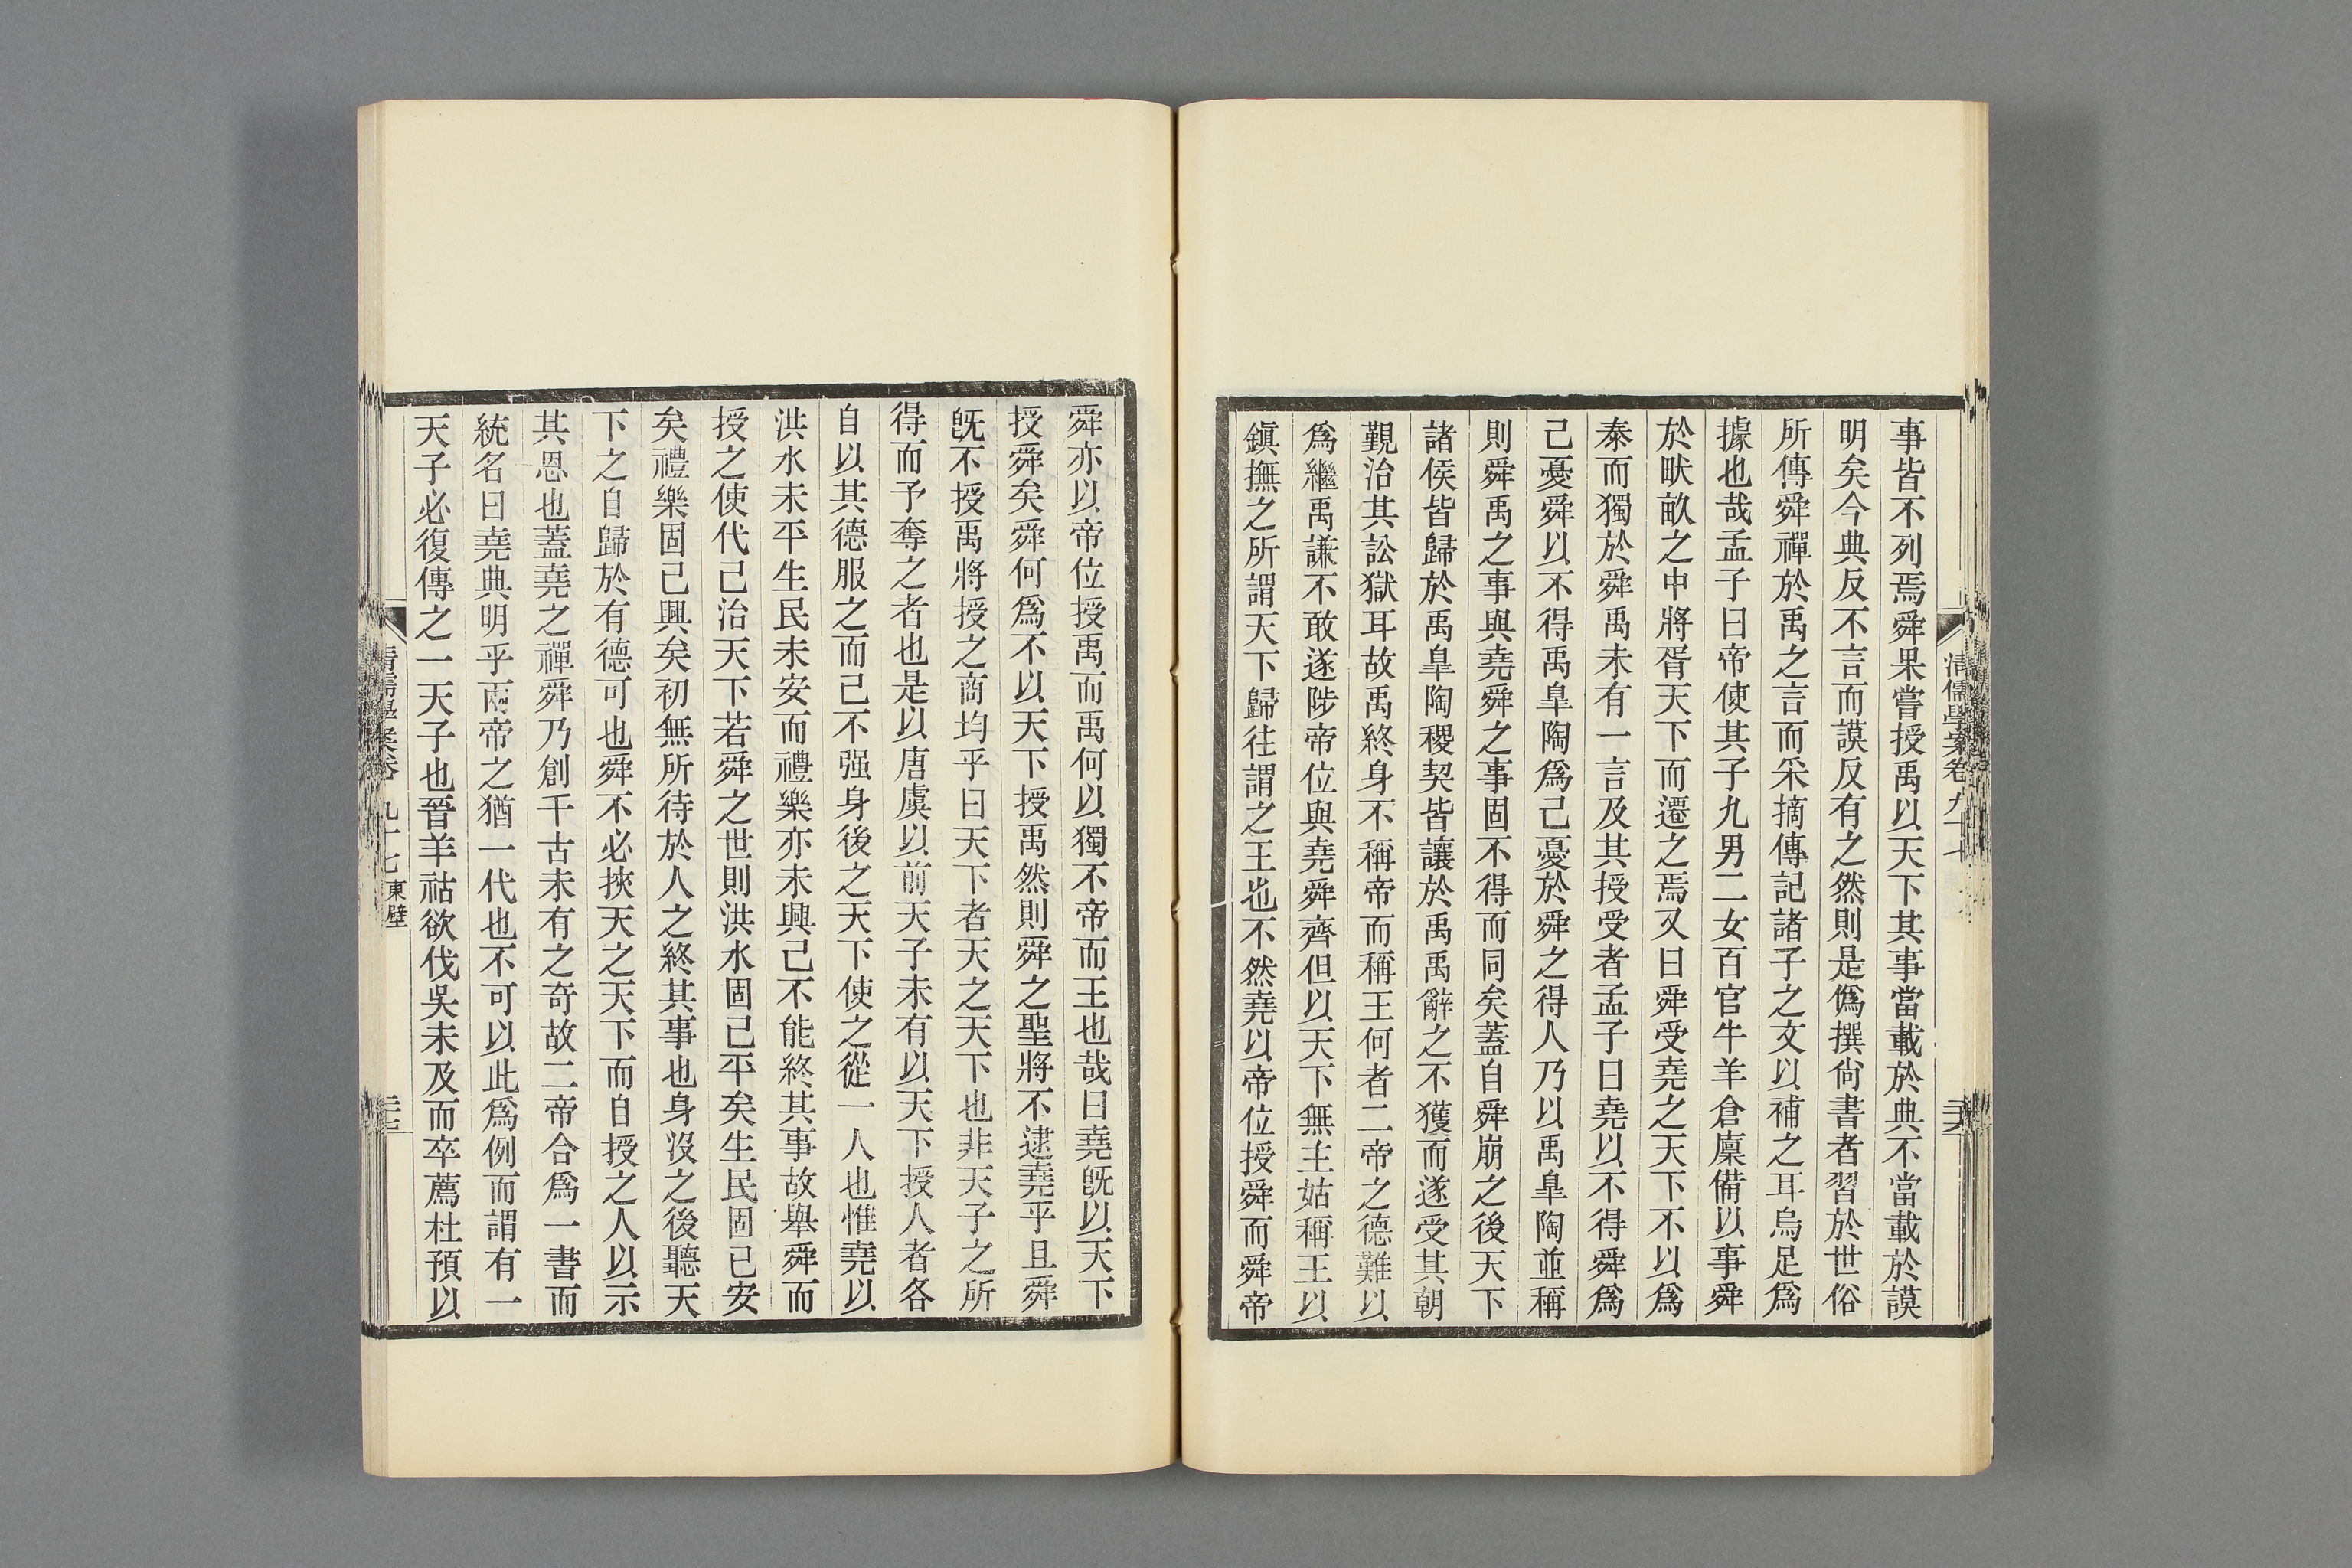 事皆不列焉舜果嘗授禹以天下其事當載於典不當載於謨
明矣今典反不言而謨反有之然則是僞撰尙書者習於世俗
所傳舜禪於禹之言而采摘傳記諸子之文以補之耳烏足爲
據也哉孟子曰帝使其子九男二女百官牛羊倉廩備以事舜
於畎畝之中將胥天下而遷之焉又曰舜受堯之天下不以爲
泰而獨於舜禹未有一言及其授受者孟子曰堯以不得舜爲
己憂舜以不得禹臯陶爲己憂於舜之得人乃以禹臯陶並稱
則舜禹之事與堯舜之事固不得而同矣蓋自舜崩之後天下
諸侯皆歸於禹臯陶稷契皆讓於禹禹辭之不獲而遂受其朝
覲治其訟獄耳故禹終身不稱帝而稱王何者二帝之德難以
爲繼禹謙不敢遂陟帝位與堯舜齊但以天下無主姑稱王以
鎭撫之所謂天下歸往謂之王也不然堯以帝位授舜而舜帝
清儒學案卷九十七
舜亦以帝位授禹而禹何以獨不帝而王也哉曰堯旣以天下
授舜矣舜何爲不以天下授禹然則舜之聖將不逮堯乎且舜
旣不授禹將授之商均乎曰天下者天之天下也非天子之所
得而予奪之者也是以唐虞以前天子未有以天下授人者各
自以其德服之而已不强身後之天下使之從一人也惟堯以
洪水未平生民未安而禮樂亦未興己不能終其事故舉舜而
授之使代己治天下若舜之世則洪水固已平矣生民固已安
矣禮樂固已興矣初無所待於人之終其事也身沒之後聽天
下之自歸於有德可也舜不必挾天之天下而自授之人以示
其恩也蓋堯之禪舜乃創千古未有之奇故二帝合爲一書而
統名曰堯典明乎兩帝之猶一代也不可以此爲例而謂有一
天子必復傳之一天子也晉羊祜欲伐吳未及而卒薦杜預以
清儒學案卷九十七 東壁